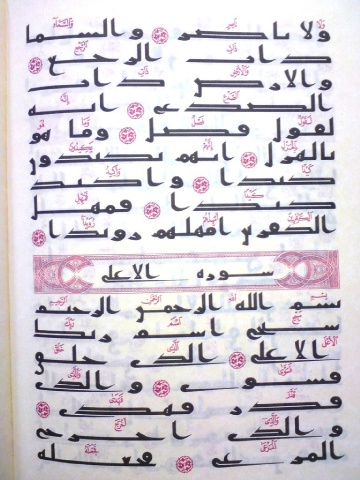 ولا ناصر والسما
ذات الرجع
والارض ذات
الصدع انه
لقول فصل وما هو
بالهزل انهم يكيدون
كيدا واكيد
كيدا فمهل
الكفرين امهلهم رويدا
سوره الاعلى
بسم الله الرحمن الرحيم
سبح اسم ربك
الاعلى الذي خلق
فسوى والذي
قدر فهدى
والذي اخرج
المرعى فجعله